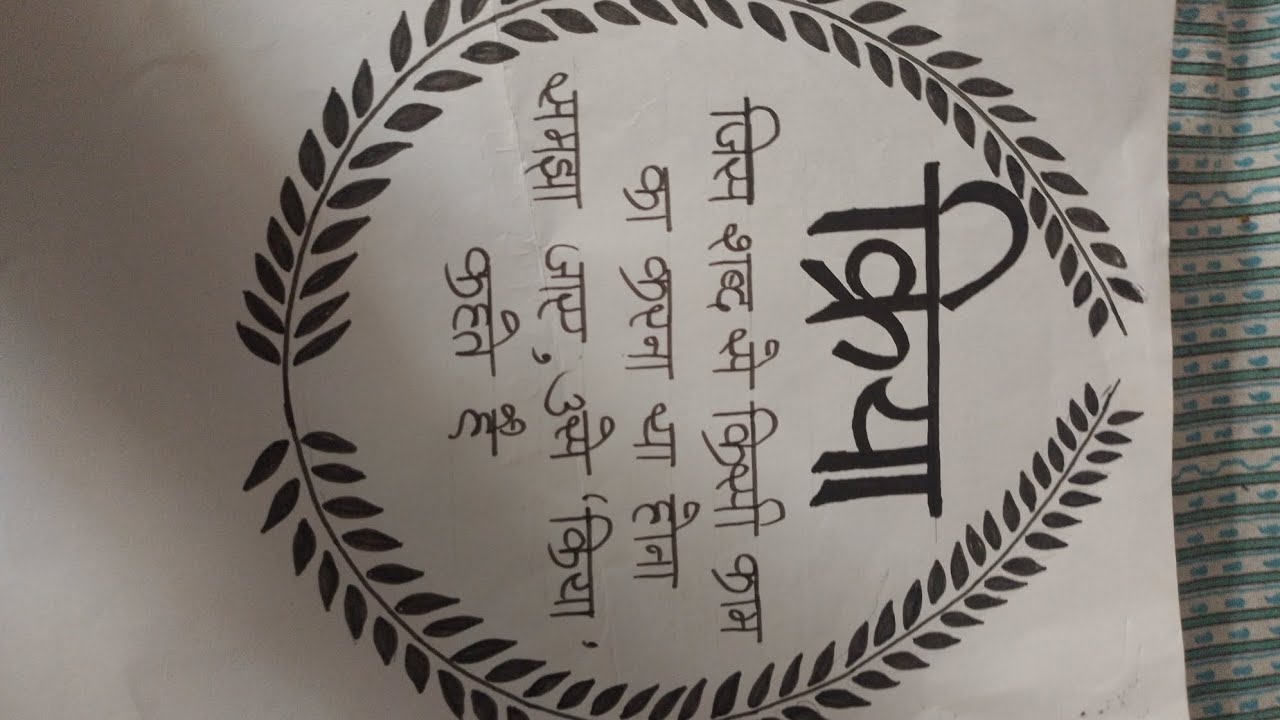 क्रिया
जिस शब्द से किसी काम
का करना या होना
समझा जाए, उसे 'क्रिया'
कहते हैं